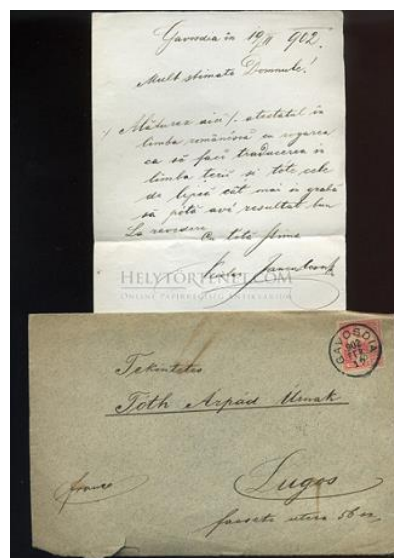 Gavosdia în 19/II 902.
Mult stimate Domnule!
Alăturez aici /. atestatul în
limba românéscă cu rogarea
ca să faci traducerea in
limba terii si tote cele
de lipsă cât mai in grabă
să pótă avé resultat bun
La revedere
Cu totă stima
HELYTORTENET.COM
ONLINE PAPÍRRÉGISÉG ANTIKVÁRIUM
GAVOSDIA
902
FEB.
Tekintetes
Tóth Arpad Úrnak
franco
Lugos
facseti utcza 56 sz.